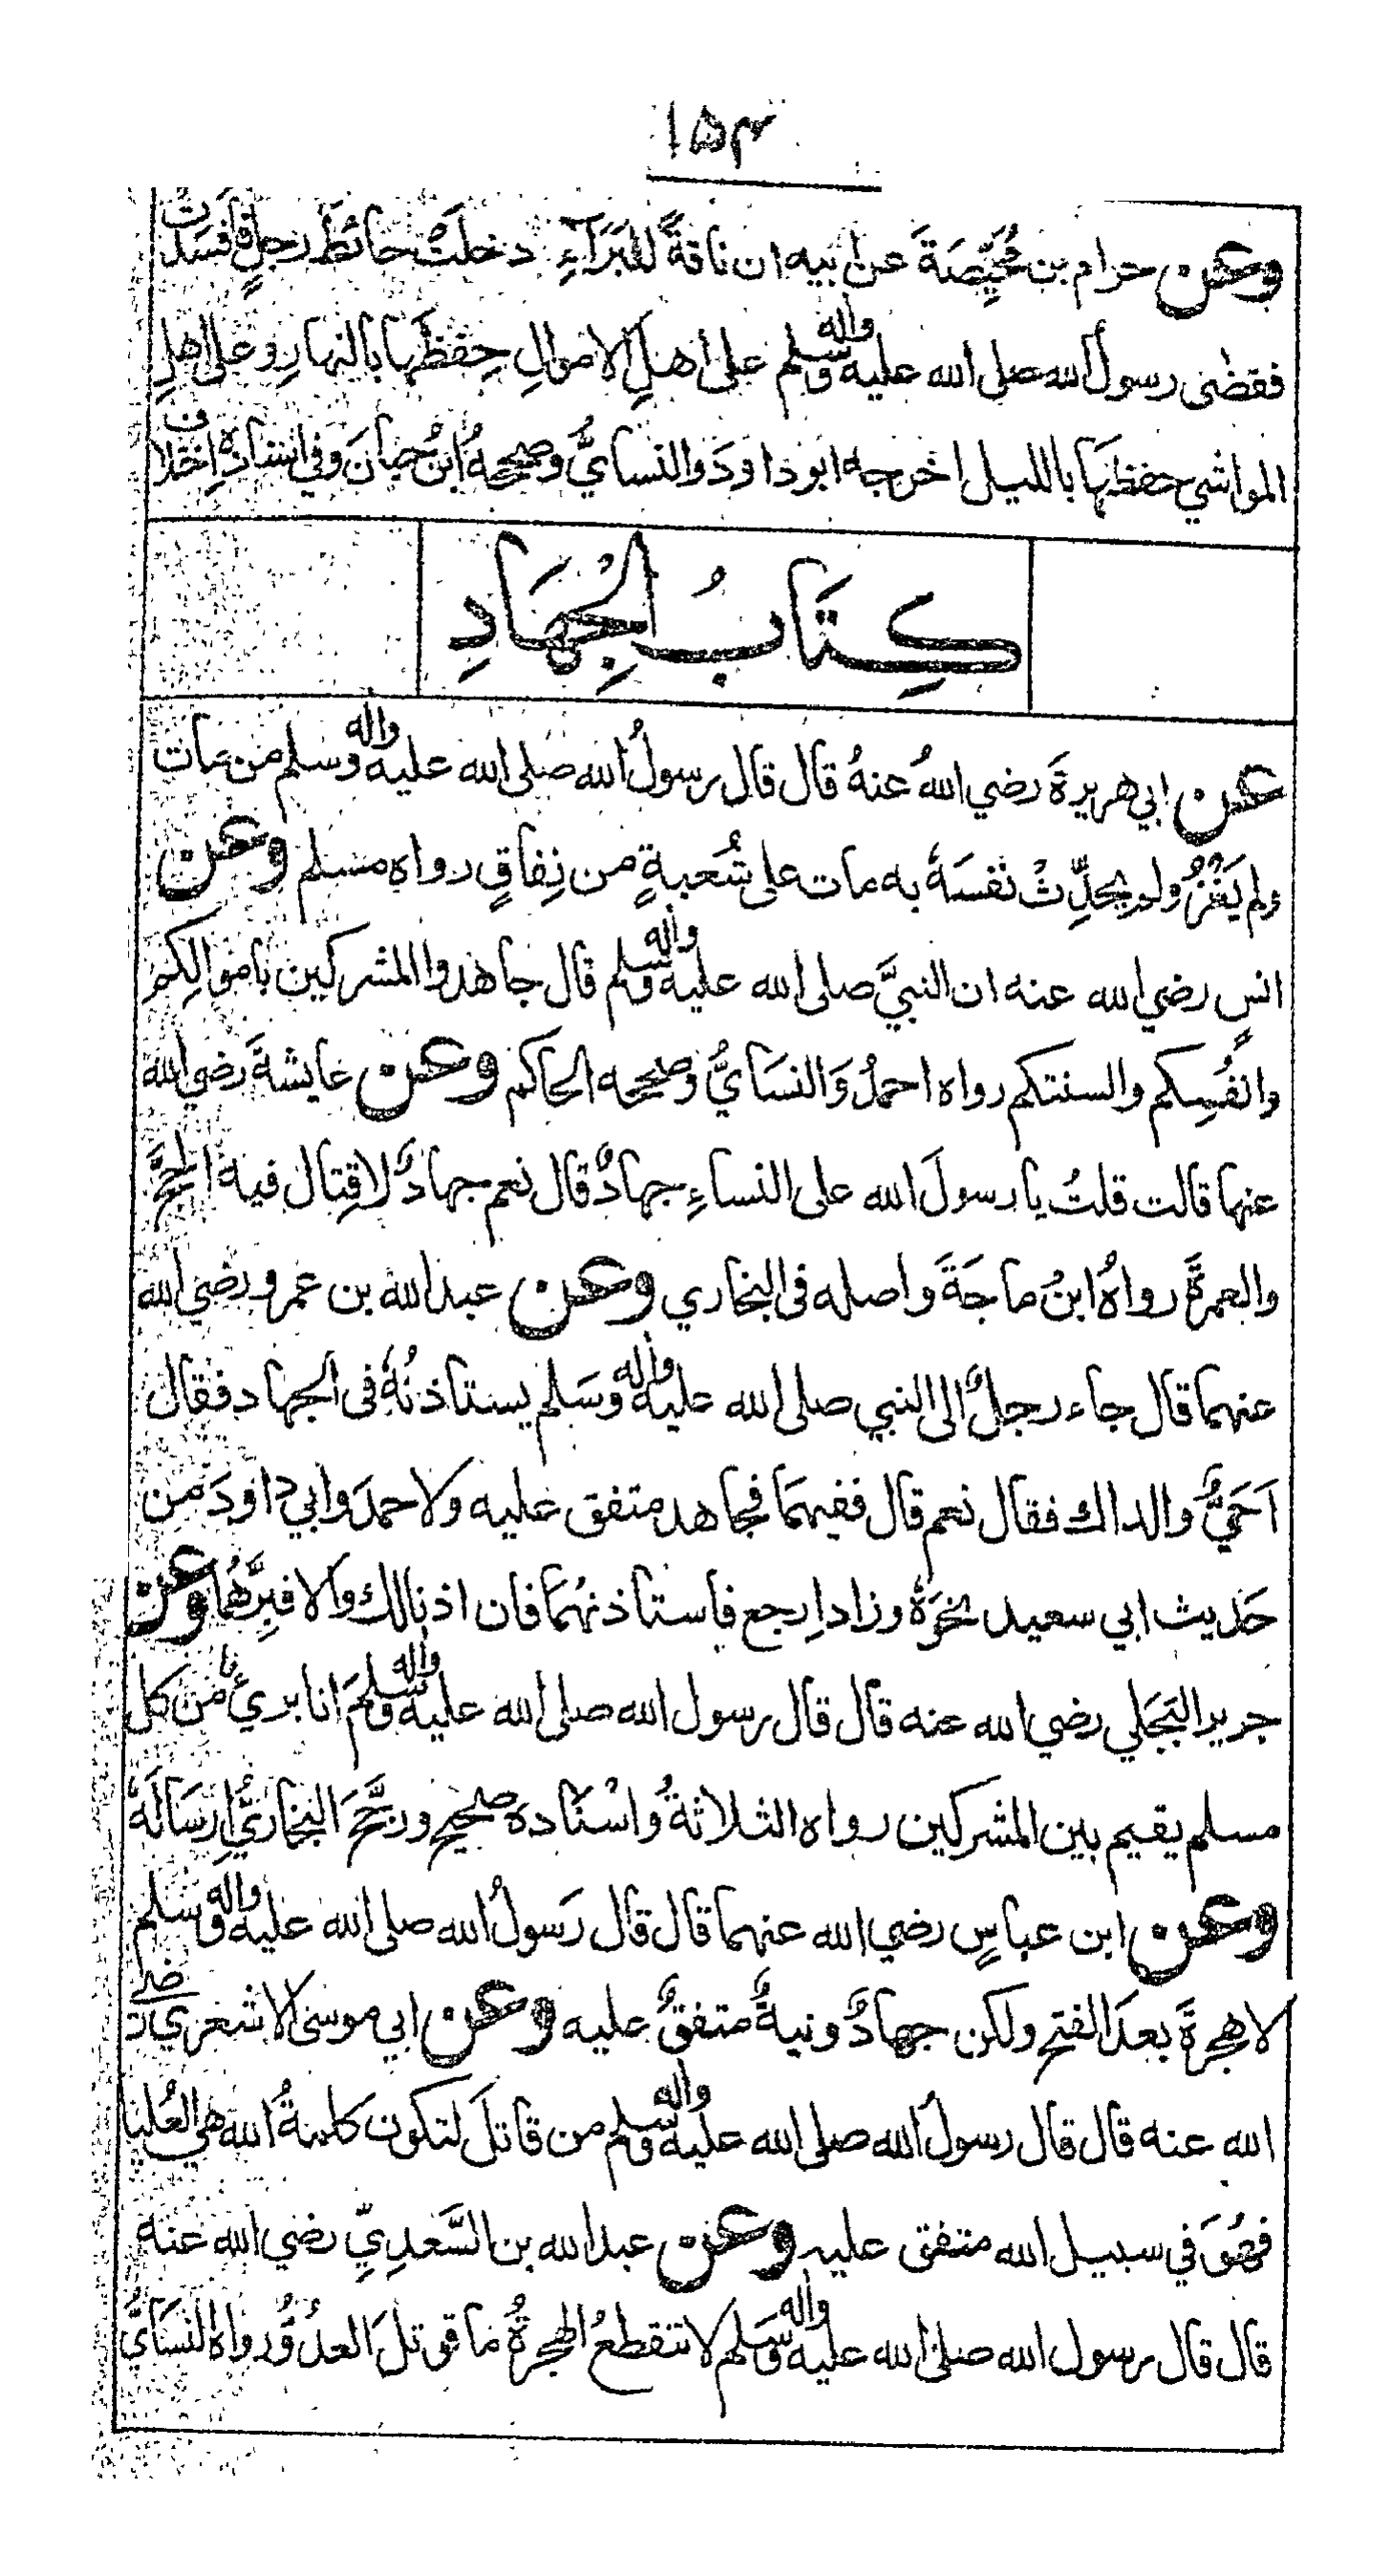 ۱۵۴
وعن حرام بن مُحَيِّصَةَ عن ابيه ان ناقةً للبَرَآءِ دخلَتْ حائطَ رجلٍ فافسدَت
فقضٰى رسولُ الله صلى الله عليه واله وسلم على اهلِ الاموالِ حِفظَها بالنهارِ وعلى اهلِ
المواشي حفظَها بالليل اخرجه ابوداودَ والنسايُّ وصححهُ ابنُ حبانَ وفي اسنادهِ اختلاف
كِتَابُ الْجِهَادِ
عن ابي هريرةَ رضي اللهُ عنهُ قال قال رسولُ الله صلى الله عليه واله وسلم من مات
ولم يَغْزُ ولم يُحدِّثْ نفسَهُ به مات على شُعبةٍ من نِفاقٍ رواه مسلم وعن
انسٍ رضي الله عنه ان النبيَّ صلى الله عليه واله وسلم قال جاهدوا المشركين باموالِكم
وانفُسِكم والسنتكم رواه احمدُ وَالنسَايُّ وصححه الحاكم وعن عايشةَ رضي الله
عنها قالت قلتُ يا رسولَ الله على النساءِ جهادٌ قال نعم جهادٌ لا قِتال فيه الحجُّ
والعمرةُ رواهُ ابنُ ماجَةَ واصله فى البخاري وعن عبد الله بن عمرو رضي الله
عنهما قال جاء رجلٌ الى النبي صلى الله عليه واله وسَلم يستاذنُهُ فى الجهاد فقال
اَحَيٌّ والداك فقال نعم قال ففيهمَا فجاهد متفق عليه ولاحمدَ وابي داودَ من
حَديث ابي سعيد نحوَهُ وزاد اِرجع فاستاذنهُمَا فان اذنالك والا فبِرَّهُما وعن
جرير البَجَلي رضي الله عنه قال قال رسول الله صلى الله عليه واله وسلمَ انا بريٌ من كل
مسلم يقيم بين المشركين رواه الثلاثةُ واسْنَادهُ صحيح ورجَّحَ البخاريُّ اِرسَالَهُ
وعن ابن عباسٍ رضي الله عنهما قال قال رَسولُ الله صلى الله عليه واله وسلم
لا هجرةَ بعدَ الفتحِ ولكن جهادٌ ونيةٌ متفقٌ عليه وعن ابي موسىٰ الاشعري رضي
الله عنه قال قال رسولُ الله صلى الله عليه واله وسلم من قاتلَ لتكون كلمةُ الله هي العُليا
فهُوَ في سبيل الله متفق عليه وعن عبد الله بن السَّعدِيِّ رضي الله عنه
قال قال رسول الله صلى الله عليه واله وسَلم لا تنقطعُ الهجرةُ ما قوتلَ العدُوُّ رواه النسَايُّ